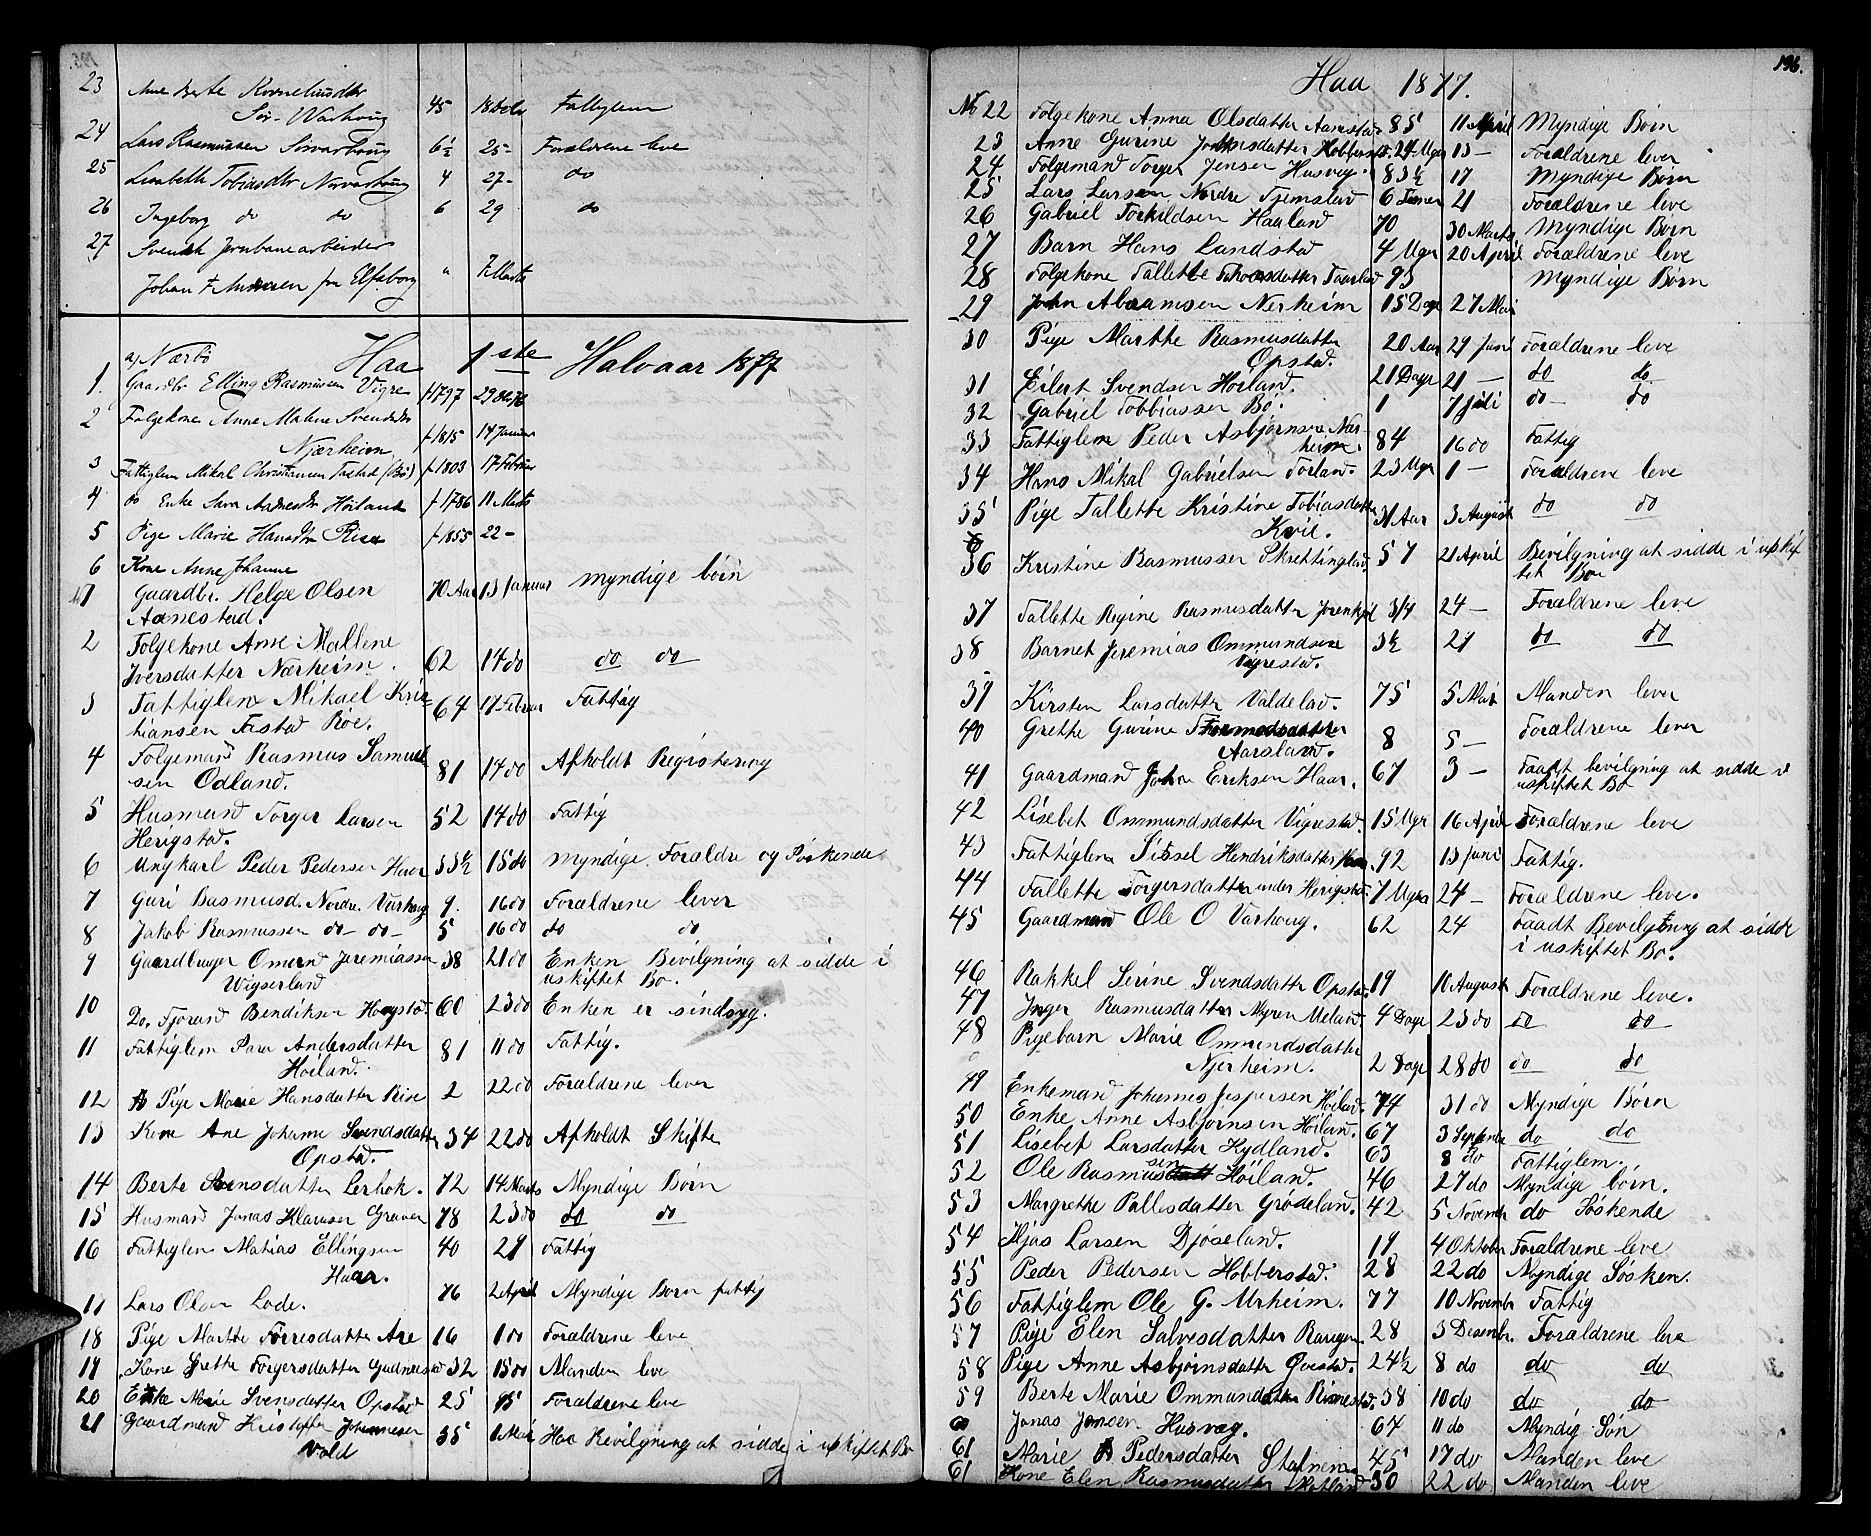 23 Ane Berte Korneliusdtr
Sør-Warhoug 45 18 Febr Fattiglem
24 Lars Rasmussen Sørvarhoug 6½ 25- Forældrene leve
25 Lisabeth Tobiasdtr Norvarhoug 4 27- do
26 Ingeborg do do 6 29 do
27 Svensk Jernbanearbeider
Johan F. Andersen fra Elfsborg " 7 Marts
a, Nærbö Haa 1ste Halvaar 1877
1. Gaardbr Elling Rasmussen Vigre f 1797
2 Folgekone Anne Malene Svendsdtr
Njærheim f 1815 14 Januar
3 Fattiglem Mikal Christiansen Tastad (Bö) f 1803 17 Februar
4 do Enke Sara Andersdtr Höiland f 1786 11 Marts
5 Pige Marie Hansdtr Rise f 1855 22-
6 Kone Anne Johanne
1 Gaardbr. Helge Olsen 70 Aar 13 Januar myndige börn
Aanestad.
2 Folgekone Ane Mallene
Iversdatter Nærheim. 62 14 do do do
3 Fattiglem Mikael Kris-
tiansen Tastad Böe. 64 17 Februar Fattig
4 Folgemand Rasmus Samuel
sen Odland. 81 14 do Afholdt Registering
5 Husmand Torger Larsen 52 14 do Fattig
Herigstad.
6 Ungkarl Peder Pedersen Haar 33½ 15 do myndige Forældre og Söskende
7 Guri Rasmusd. Nordre Varhoug 9. 16 do Forældrene lever
8 Jakob Rasmussen do- do- 5 16 do do do
9 Gaardbruger Omund Jeremiassen 38 21 do Enken Bevilgning at sidde i
Wigserland uskiftet Bo.
10 Do. Tjorand Bendiksen Haugstad. 60 23 do Enken er sindsyg.
11 Fattiglem Sara Andersdatter 81 11 do Fattig.
Höiland.
12 Pige Marie Hansdatter Rise 2 22 do Forældrene lever
13 Kone Ane Johanne Svendsdatter 34 22 do Afholdt Skifte
Opstad.
14 Berte Svensdatter Lerbok. 72 14 Marts Myndige Börn
15 Husmand Jonas Klausen Graver 78 23 do do do
16 Fattiglem Matias Ellingsen 40 29 Fattig
Haar.
17 Lars Olsen Lode. 76 2 April Myndige Børn fattig
18 Pige Marthe Torresdatter Are 16 1 do Forældrene leve
19 Kone Grethe Torgersdatter Gudmestad 32 15 do Manden leve
20 Enke Marie Svensdatter Opstad 25 Forældrene leve
21 Gaardmand Kristoffer Johannesen 35 1 Mai Haa Bevilgning at sidde i uskiftet Bo
Vold
196.
Haa 1877.
No 22 Folgekone Anna Olsdatter Aanestad 85 11 April Myndige Børn
23 Anne Gurine Johnsdatter Hobberstad 24 Uger 13 - Forældrene lever
24 Folgemand Torger Jensen Husveg. 83½ 17 Myndige Børn
25 Lars Larsen Nordre Tjemsland 6 Timer 21 Forældrene leve
26 Gabriel Torkildsen Haaland 70 30 Marts Myndige Børn
27 Barn Hans Lundstad 4 Uger 20 April Forældrene leve
28 Folgekone Tallette 93 Myndige Børn
29 John Abramsen Nerheim 15 Dage 27 Mai
30 Pige Marthe Rasmusdatter 20 Aar 29 Juni Forældrene leve
Opstad.
31 Eilert Svendsen Höiland. 21 Dage 21 - do do
32 Gabriel Tobbiassen Bö. 1 7 Juli do- do
33 Fattiglem Peder Asbjørnsen Nær-
heim. 84 16 do Fattig
34 Hans Mikal Gabrielsen Torland. 23 Uger 1 - Forældrene leve
35 Pige Tallette Kristine Tobiasdatter 31 Aar 3 August do do
Kvie.
36 Kristine Rasmussen Skrettingland. 57 21 April Bevilgning at sidde i uskif
tet Bo
37 Tallette Regine Rasmusdatter 3/4 24 - Forældrene leve
38 Barnet Jeremias Ommundsen 3½ 21 do do
Vigrestad.
39 Kirsten Larsdatter Valdeland. 75 5 Mai Manden lever
40 Grette Gurine Tormodsdatter 8 5 - Forældrene lever
Aarsland.
41 Gaardmand John Eriksen Haar. 67 3 - Faadt bevilgning at sidde i
uskiftet Bo
42 Lisebet Ommundsdatter Vigrestad. 15 Uger 16 April Forældrene leve
43 Fattiglem Sissel Hendriksdatter Haar 92 13 Juni Fattig.
44 Tallette Torgersdatter under Herigstad. 7 Uger 24 - Forældrene leve.
45 Gaardmand Ole O Varhoug. 62 24 Faadt Bevilgning at sidde
i uskiftet Bo.
46 Rakkel Serine Svendsdatter Opstad. 19 10 August Forældrene leve.
47 Inger Rasmusdatter Myren Ueland. 4 Dage 23 do do do
48 Pigebarn Marie Ommundsdatter
Njerheim. 2 Dage 28 do do do
49 Enkemand Johannes Jespersen Höiland. 74 31 do Myndige Børn
50 Enke Anne Asbjørnsen Höiland. 67 3 Septembe do do
51 Lisebet Larsdatter Hydland. 63 8 do Fattiglem.
52 Ole Rasmussen Höiland. 46 27 do Myndige börn.
53 Margrethe Pallesdatter Grödeland. 42 5 Novembr do Söskende
54 Hjas Larsen Djöseland. 19 4 Oktober Forældrene leve
55 Peder Pedersen Hobberstad. 28 22 do Myndige Søsken.
56 Fattiglem Ole G. Urheim. 77 10 Novembr Fattig
57 Pige Elen Salvesdatter Raugen 28 3 Desembr. Forældrene leve
58 Pige Anne Asbjørnsdatter Qvestad. 24½ 8 do do do
59 Berte Marie Ommundsdatter Rimestad. 38 10 do do do
Jonas Jonsen Husveg. 64 11 do Myndig Søn
61 Marie Pedersdatter Stalnen 45 17 do Manden leve
61 Kone Elen Rasmusdatter Motland 30 22 do Manden leve